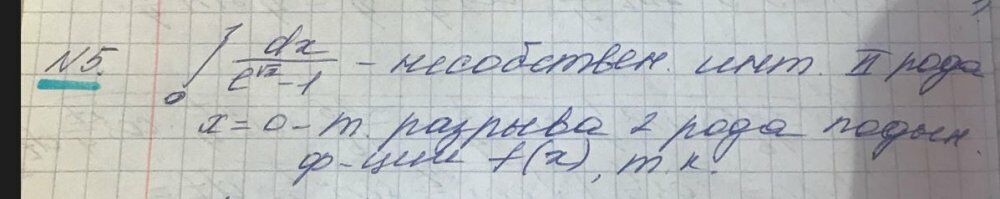 N5. ∫₀¹ dx / (e^√x - 1) - несобствен. инт. II рода
x = 0 - т. разрыва 2 рода подын.
ф-ции f(x), т.к.